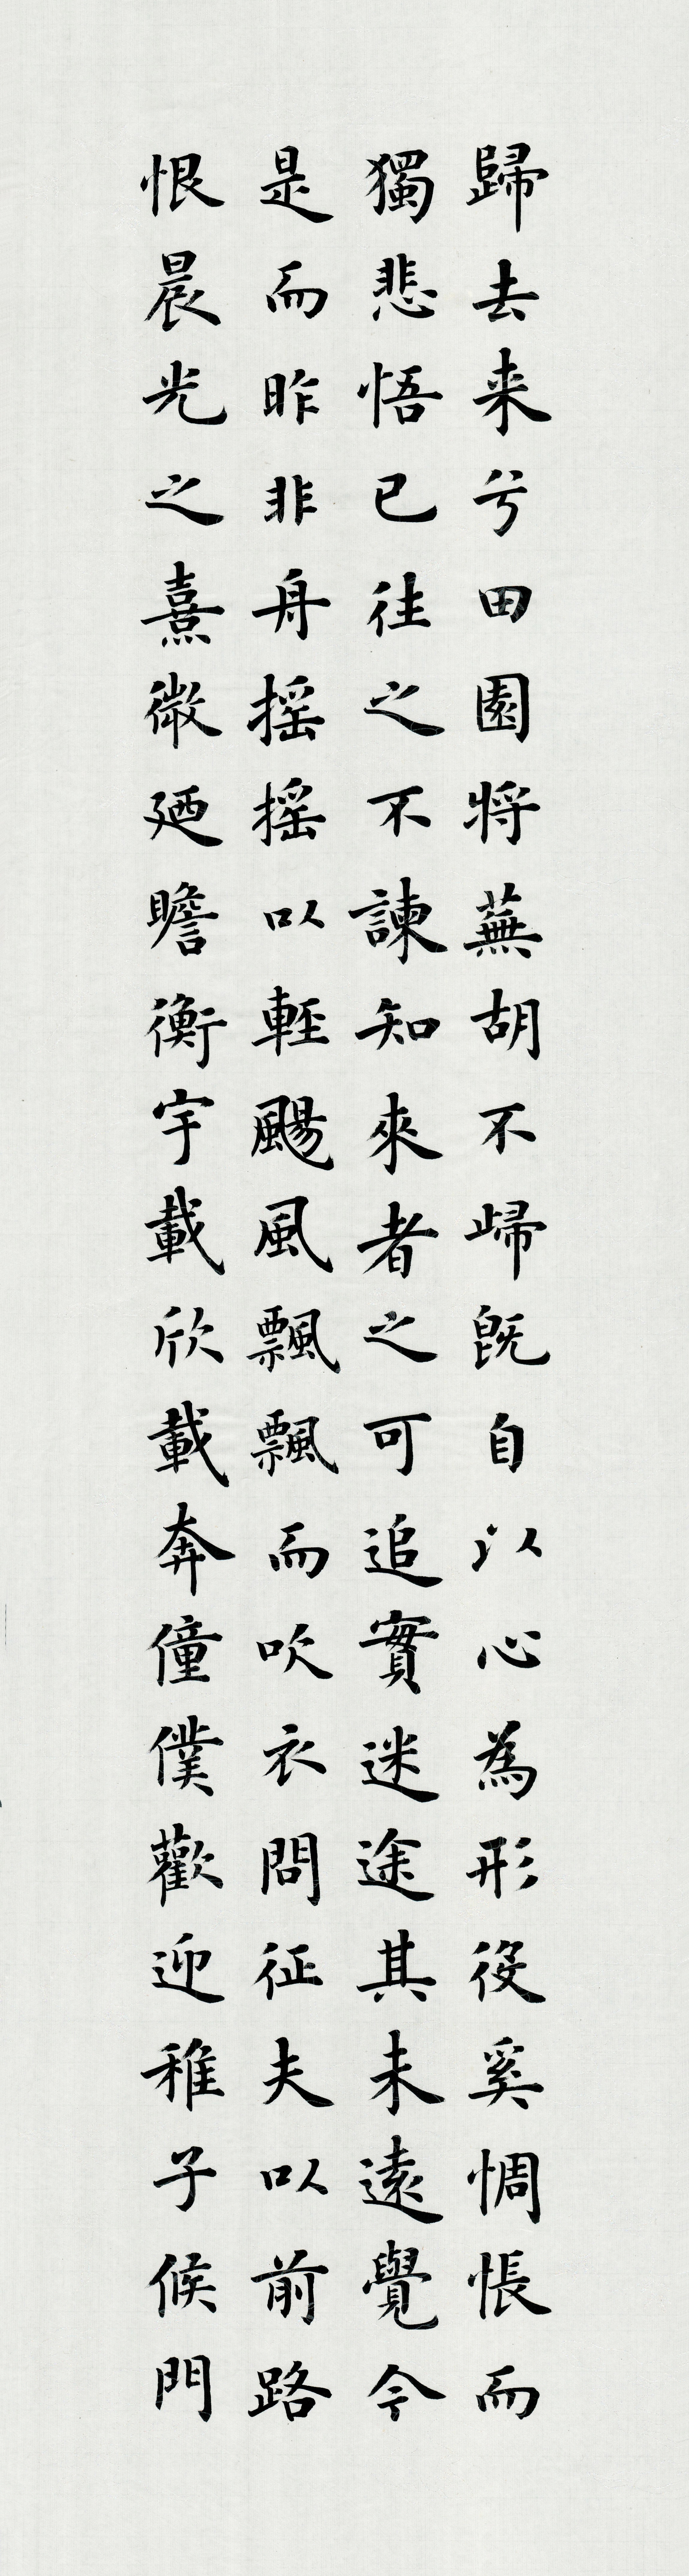 歸去来兮田園將蕪胡不歸既自以心為形役奚惆悵而
獨悲悟已往之不諫知來者之可追實迷途其未遠覺今
是而昨非舟摇摇以輕颺風飄飄而吹衣問征夫以前路
恨晨光之熹微廼瞻衡宇載欣載奔僮僕歡迎稚子候門